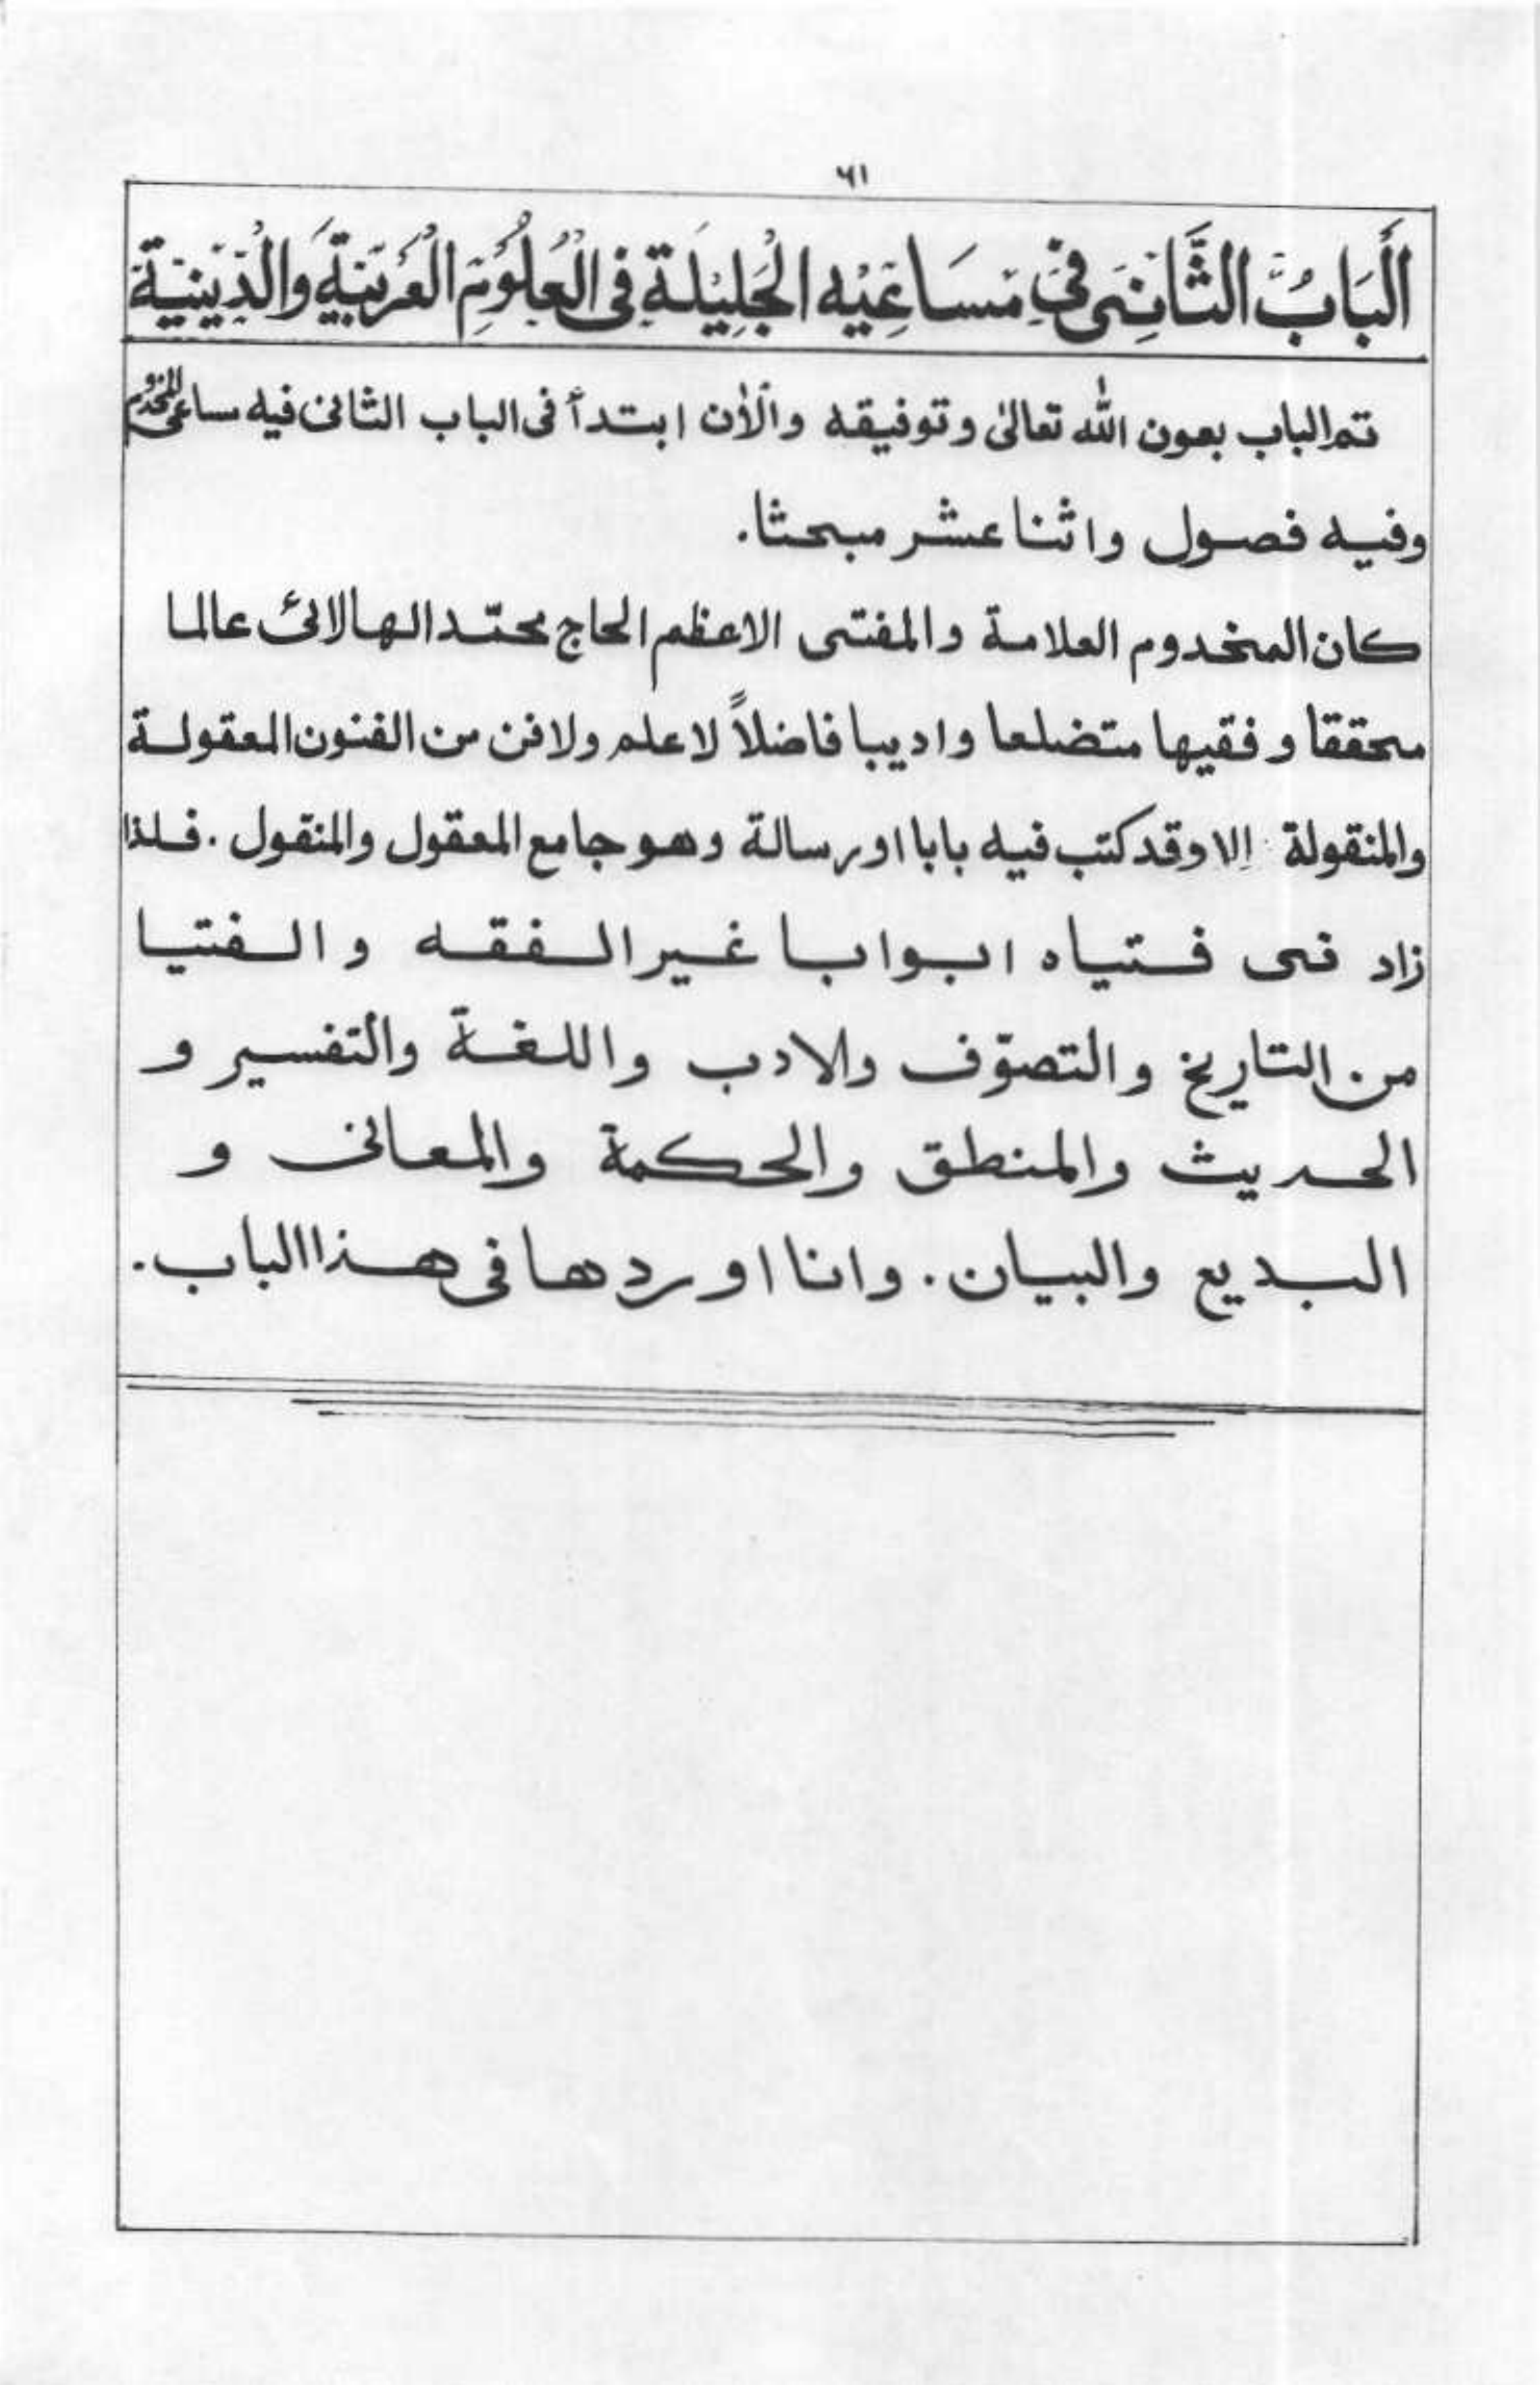 ٦١
اَلْبَابُ الثَّانِى فِى مَسَاعِيْهِ الْجَلِيْلَةِ فِى الْعُلُوْمِ الْعَرَبِيَّةِ وَالْدِّيْنِيَّةِ
تم الباب بعون الله تعالىٰ وتوفيقه والٓاٰن ابتدأ فى الباب الثانى فيه ساعى المخدوم
وفيه فصول واثنا عشر مبحثا.
كان المخدوم العلامة والمفتى الاعظم الحاج محمّد الهالائى عالما
محققا وفقيها متضلعا واديبا فاضلاً لا علم ولا فن من الفنون المعقولة
والمنقولة إلا وقد كتب فيه بابا اورسالة وهو جامع المعقول والمنقول. فلذا
زاد فى فتياه ابوابا غير الفقه والفتيا
من التاريخ والتصوّف والادب واللغة والتفسير و
الحديث والمنطق والحكمة والمعانى و
البديع والبيان. وانا اوردها فى هذا الباب.